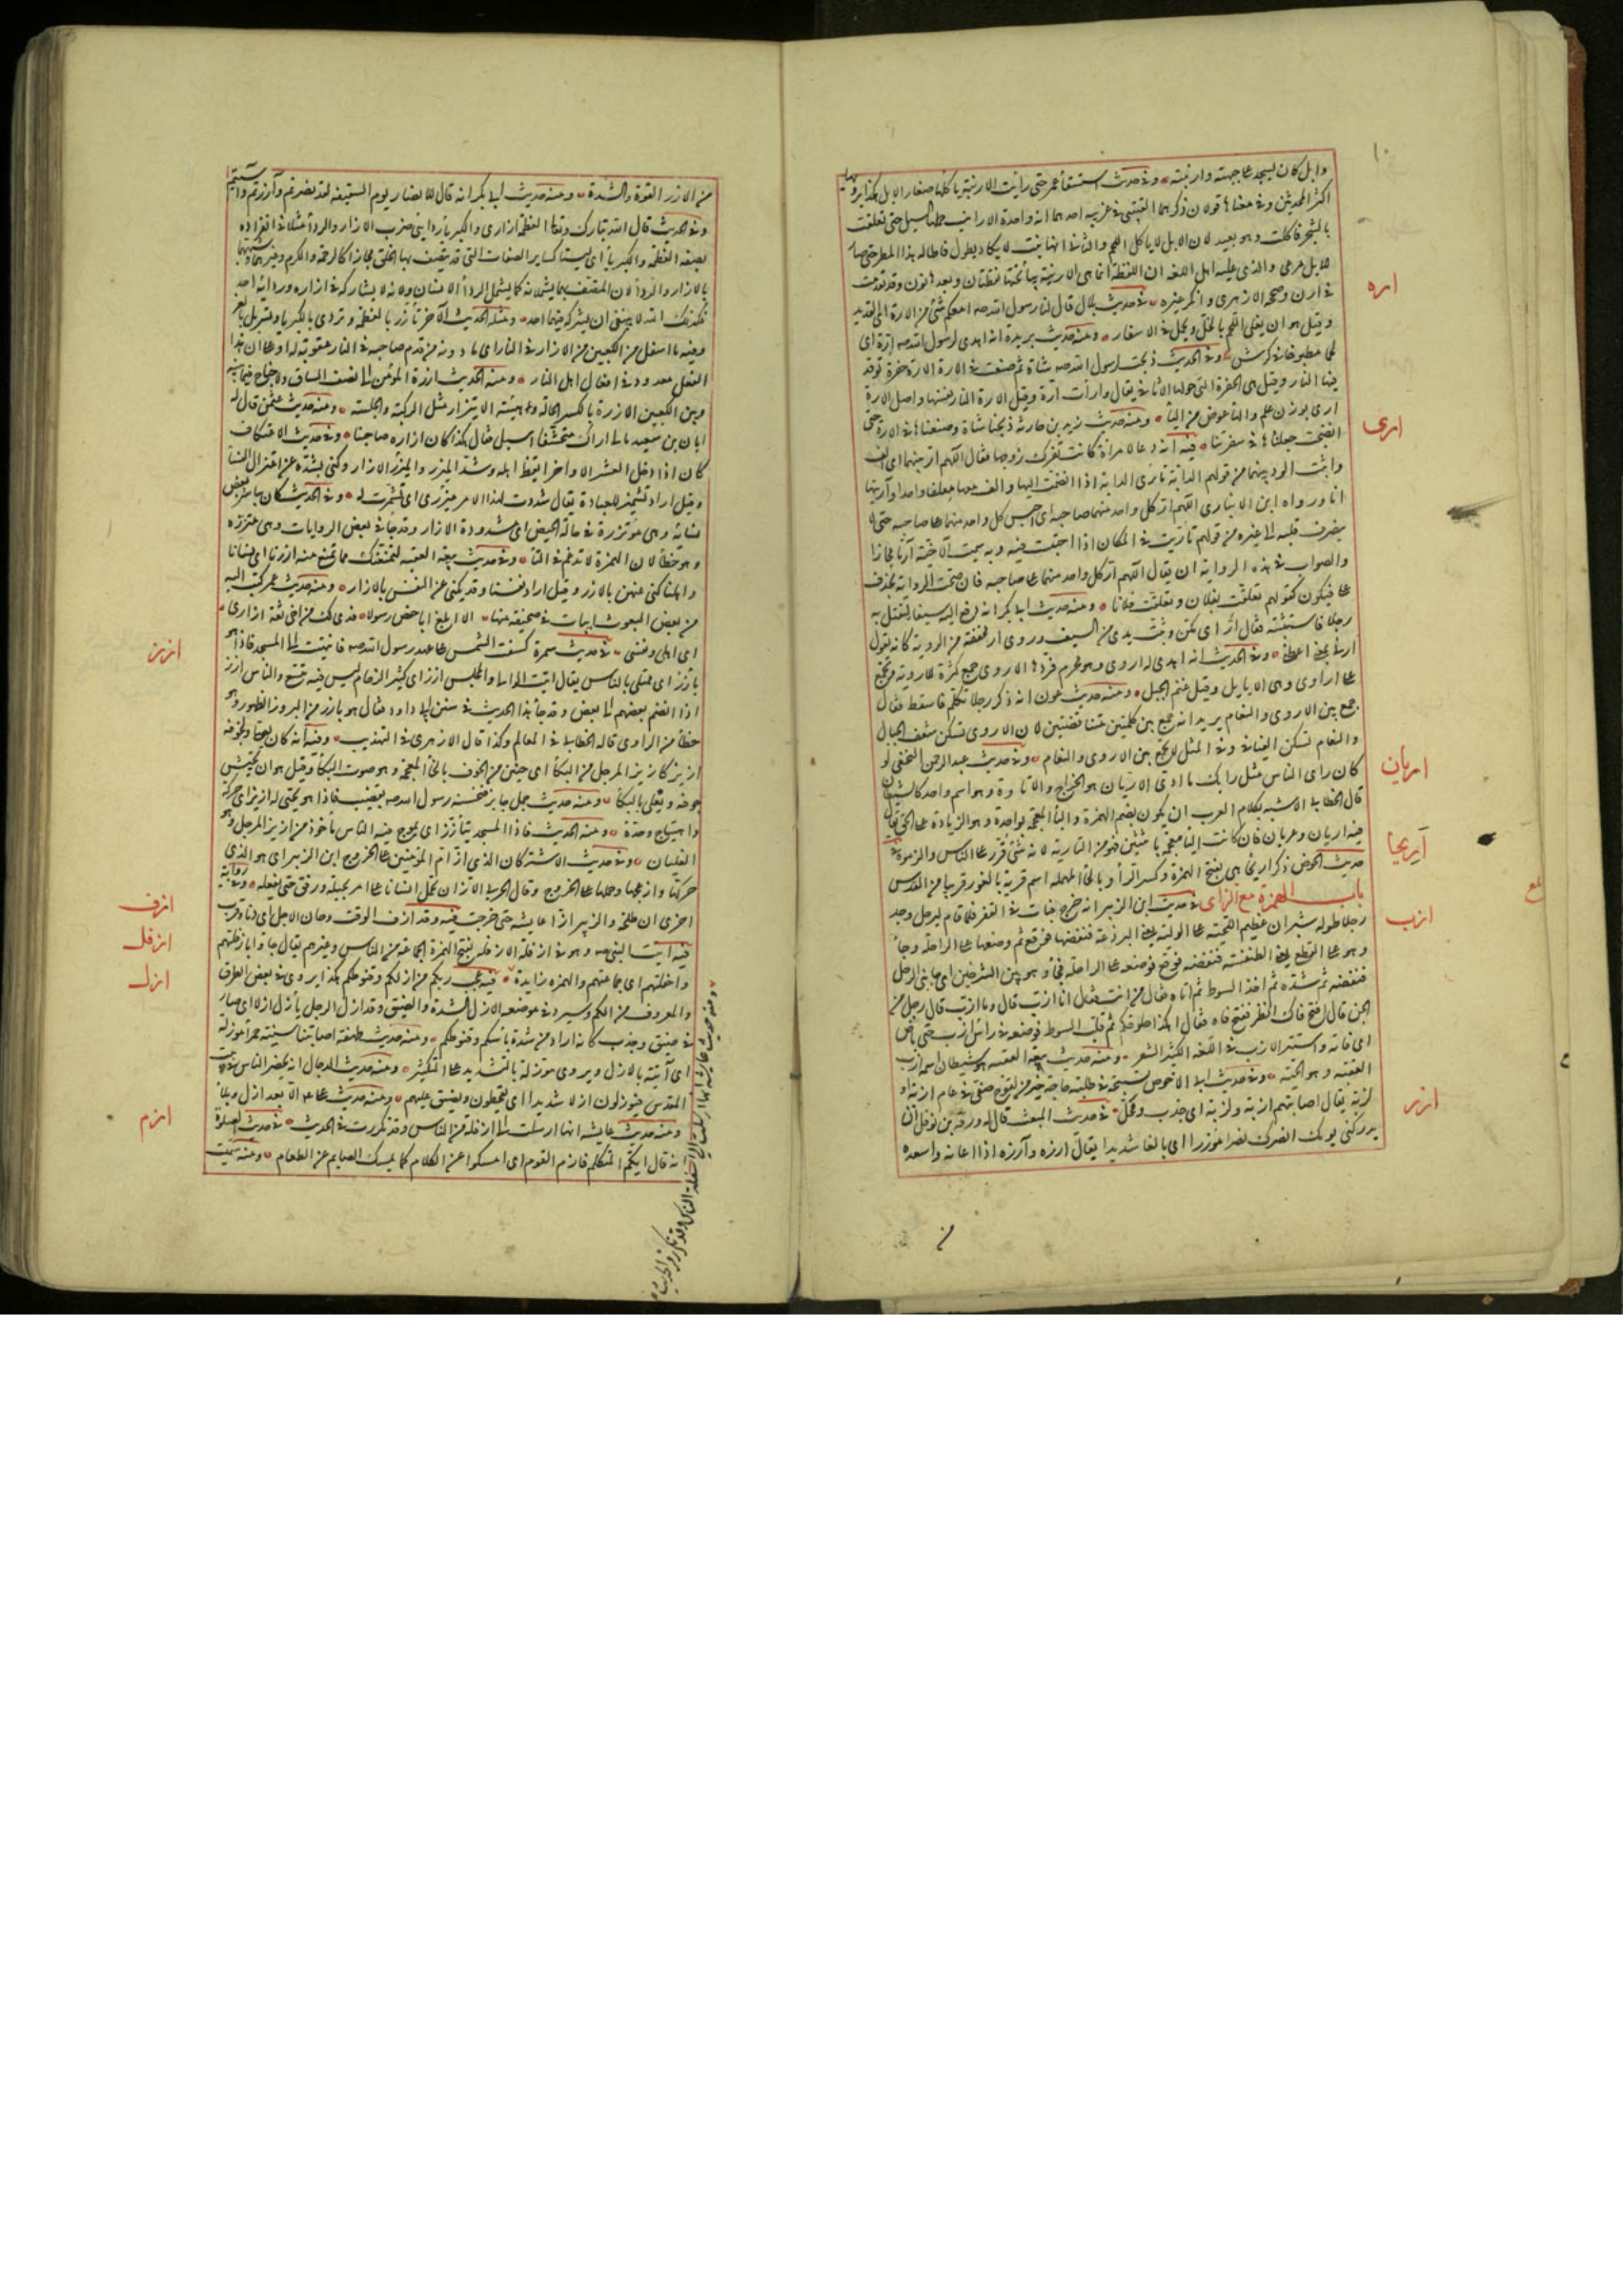 ١٠
وابل كان يسجد على جبهته وارنبته وفي حديث استسقاء عمر حتى رأيت الارنبة ياكلها صغار الابل هكذا يرويها
اكثر المحدثين وفي معناها قولان ذكرهما القتيبي في غريبه احدهما انها واحدة الارانب حملها السيل حتى تعلقت
بالشجر فاكلت وهو بعيد لان الابل لا ياكل اللحم والثاني انها نبت لا يكاد يطول فاطاله هذا المطر حتى صار
للابل مرعى والذي عليه اهل اللغة ان اللفظة انما هي الارينة بياء تحتها نقطتان وبعدها نون وقد تقدمت
في ارن وصححه الازهري وانكر غيره
اره
في حديث بلال قال لنا رسول الله صه امعكم شئ من الارة اي القديد
وقيل هو ان يغلى اللحم بالخل ويحمل في الاسفار ومنه حديث بريدة انه اهدى لرسول الله صه ارة اى
لحما مطبوخا في كرش وفي الحديث ذبحت لرسول الله صه شاة ثم صنعت في الارة الارة حفرة توقد
فيها النار وقيل هي الحفرة التي حولها الاثافي يقال وأرت ارة وقيل الارة النار نفسها واصل الارة
ارى بوزن علم والها عوض من اليا ومنه حديث زيد بن حارثة ذبحنا شاة وصنعناها في الارة حتى
اذا نضجت جعلناها في سفرتنا
ارى
فيه انه دعا لامرأة كانت تفرك زوجها فقال اللهم ار بينهما اى الف
واثبت الود بينهما من قولهم الدابة تأرى الدابة اذا انضمت اليها والفت معها معلفا واحدا وآريتها
انا ورواه ابن الانبارى اللهم ار كل واحد منهما صاحبه اى احبس كل واحد منهما على صاحبه حتى لا
يصرف قلبه الى غيره من قولهم تأريت في المكان اذا احتبست فيه وبه سميت الآخية آريا مجازا
والصواب في هذه الرواية ان يقال اللهم ار كل واحد منهما على صاحبه فان صحت الرواية بحذف
على فيكون كقولهم تعلقت بفلان وتعلقت فلانا ومنه حديث ابي بكر انه دفع اليه سيفا ليقتل به
رجلا فاستثبته فقال ار اى مكن وثبت يدى من السيف وروى ار مخففة من الروية كانه يقول
ارني بمعنى اعطني وفي الحديث انه اهدى له اروى وهو محرم فردها الاروى جمع كثرة للاروية وتجمع
على اراوى وهي الايايل وقيل غنم الجبل ومنه حديث عون انه ذكر رجلا تكلم فاسقط فقال
جمع بين الاروى والنعام يريد انه جمع بين كلمتين متناقضتين لان الاروى تسكن شعف الجبال
والنعام تسكن الفيافي وفي المثل لا تجمع بين الاروى والنعام
اريان
وفي حديث عبد الرحمن النخعي لو
كان راى الناس مثل رايك ما ادى الاريان هو الخراج والاتاوة وهو اسم واحد كالشيطان
قال الخطابي الاشبه بكلام العرب ان يكون بضم الهمزة والبا المعجمة بواحدة وهو الزيادة على الحق يقال
فيه اربان وعربان فان كانت اليا معجمة باثنتين فهو من التارية لانه شئ قرر على الناس والزموه
اريحا
في حديث الحوض ذكر اريحا هي بفتح الهمزة وكسر الرا وبالحا المهملة اسم قرية بالغور قريبا من القدس
باب الهمزة مع الزاى
ازب
في حديث ابن الزبير انه خرج فبات في القفر فلما قام ليرحل وجد
رجلا طوله شبران عظيم اللحية على الولية يعني البرذعة فنفضها فوقع ثم وضعها على الراحلة وجا
وهو على القطع يعني الطنفسة فنفضه فوقع فوضعه على الراحلة فجا وهو بين الشرخين اى جانبي الرحل
فنفضه ثم شده ثم اخذ السوط ثم اتاه فقال من انت فقال انا ازب قال وما ازب قال رجل من
الجن قال افتح فاك انظر ففتح فاه فقال اهكذا حلوقكم ثم قلب السوط فوضعه في راس ازب حتى باص
اى فاته واستتر الازب في اللغة الكثير الشعر ومنه حديث بيعة العقبة هو شيطان اسمه ازب
العقبة وهو الحية وفي حديث ابي الاحوص لتسبيحة في طلب حاجة خير من لقوح صفى في عام ازبة او
لزبة يقال اصابتهم ازبة ولزبة اى جدب ومحل
ازر
في حديث المبعث قال له ورقة بن نوفل ان
يدركني يومك انصرك نصرا مؤزرا اى بالغا شديدا يقال ازره وآزره اذا اعانه واسعده
من الازر القوة والشدة ومنه حديث ابي بكر انه قال للانصار يوم السقيفة لقد نصرتم وآزرتم وآسيتم
وفي الحديث قال الله تبارك وتعالى العظمة ازارى والكبريا ردايى ضرب الازار والردا مثلا في انفراده
بصفة العظمة والكبريا اى ليستا كساير الصفات التي قد يتصف بها الخلق مجازا كالرحمة والكرم وغيرهما وشبههما
بالازار والردا لان المتصف بهما يشملانه كما يشمل الردا الانسان ولانه لا يشاركه في ازاره وردايه احد
فكذلك الله لا ينبغي ان يشركه فيهما احد ومنه الحديث الآخر تأزر بالعظمة وتردى بالكبريا وتسربل بالعز
وفيه ما اسفل من الكعبين من الازار في النار اى ما دونه من قدم صاحبه في النار عقوبة له او على ان هذا
الفعل معدود في افعال اهل النار ومنه الحديث ازرة المؤمن الى نصف الساق ولا جناح عليه فيما بينه
وبين الكعبين الازرة بالكسر الحالة وهيئة الايتزار مثل الركبة والجلسة ومنه حديث عثمن قال له
ابان بن سعيد مالي اراك متحشفا اسبل فقال هكذا كان ازارة صاحبنا وفي حديث الاعتكاف
كان اذا دخل العشر الاواخر ايقظ اهله وشد الميزر والميزر الازار وكنى بشده عن اعتزال النسا
وقيل اراد تشميره للعبادة يقال شددت لهذا الامر ميزرى اى تشمرت له وفي الحديث كان يباشر بعض
نسائه وهي مؤتزرة في حالة الحيض اى مشدودة الازار وقد جا في بعض الروايات وهي متزرة
وهو خطأ لان الهمزة لا تدغم في التا وفي حديث بيعة العقبة لنمنعنك مما نمنع منه ازرنا اى نسانا
واهلنا كنى عنهن بالازر وقيل اراد نفسنا وقد يكنى عن النفس بالازار ومنه حديث عمر كتب اليه
من بعض البعوث ابيات في صحيفة منها الا ابلغ ابا حفص رسولا فدى لك من اخى ثقة ازارى
اى اهلى ونفسى
ازز
في حديث سمرة كسفت الشمس على عهد رسول الله صه فانتهيت الى المسجد فاذا هو
بازز اى ممتلى بالناس يقال اتيت الوالي والمجلس ازز اى كثير الزحام ليس فيه متسع والناس ازز
اذا انضم بعضهم الى بعض وقد جا هذا الحديث في سنن ابي داود فقال هو بارز من البروز الظهور وهو
خطأ من الراوى قاله الخطابي في المعالم وكذا قال الازهرى في التهذيب وفيه انه كان يصلى ولجوفه
ازيز كازيز المرجل من البكا اى خنين من الخوف بالخا المعجمة وهو صوت البكا وقيل هو ان يجيش
جوفه ويغلى بالبكا ومنه حديث جمل جابر فنخسه رسول الله صه بقضيب فاذا هو تحتي له ازيز اى حركة
واهتياج وحدة ومنه الحديث فاذا المسجد يتأزز اى يموج فيه الناس مأخوذ من ازيز المرجل وهو
الغليان وفي حديث الاشتر كان الذى از ام المؤمنين على الخروج ابن الزبير اى هو الذى
حركها وازعجها وحملها على الخروج وقال الحربي الاز ان تحمل انسانا على امر بحيلة ورفق حتى يفعله وفي رواية
اخرى ان طلحة والزبير ازا عايشة حتى خرجت
ازف
فيه وقد ازف الوقت وحان الاجل اى دنا وقرب
ازفل
فيه اتيت النبي صه وهو في ازفلة الازفلة بفتح الهمزة الجماعة من الناس وغيرهم يقال جاؤا بازفلتهم
واجفلتهم اى جماعتهم والهمزة زايدة
ازل
فيه عجب ربكم من ازلكم وقنوطكم هكذا يروى في بعض الطرق
والمعروف من الكم وسيرد في موضعه الازل الشدة والضيق وقد ازل الرجل يأزل ازلا اى صار
في ضيق وجدب كانه اراد من شدة ياسكم وقنوطكم ومنه حديث طهفة اصابتنا سنية حمرا مؤزلة
اى آتية بالازل ويروى مؤزلة بالتشديد على التكثير ومنه حديث الدجال انه يحصر الناس في بيت
المقدس فيؤزلون ازلا شديدا اى يقحطون ويضيق عليهم ومنه حديث علي الا بعد ازل وبلا
ومنه حديث عايشة انها ارسلت الى ازفلة من الناس وقد تكررت في الحديث
ازم
في حديث الصلوة
انه قال ايكم المتكلم فازم القوم اى امسكوا عن الكلام كما يمسك الصايم عن الطعام ومنه سميت
ومنه حديث عايشة انها ارسلت الى ازفلة من الناس وقد تكررت في الحديث